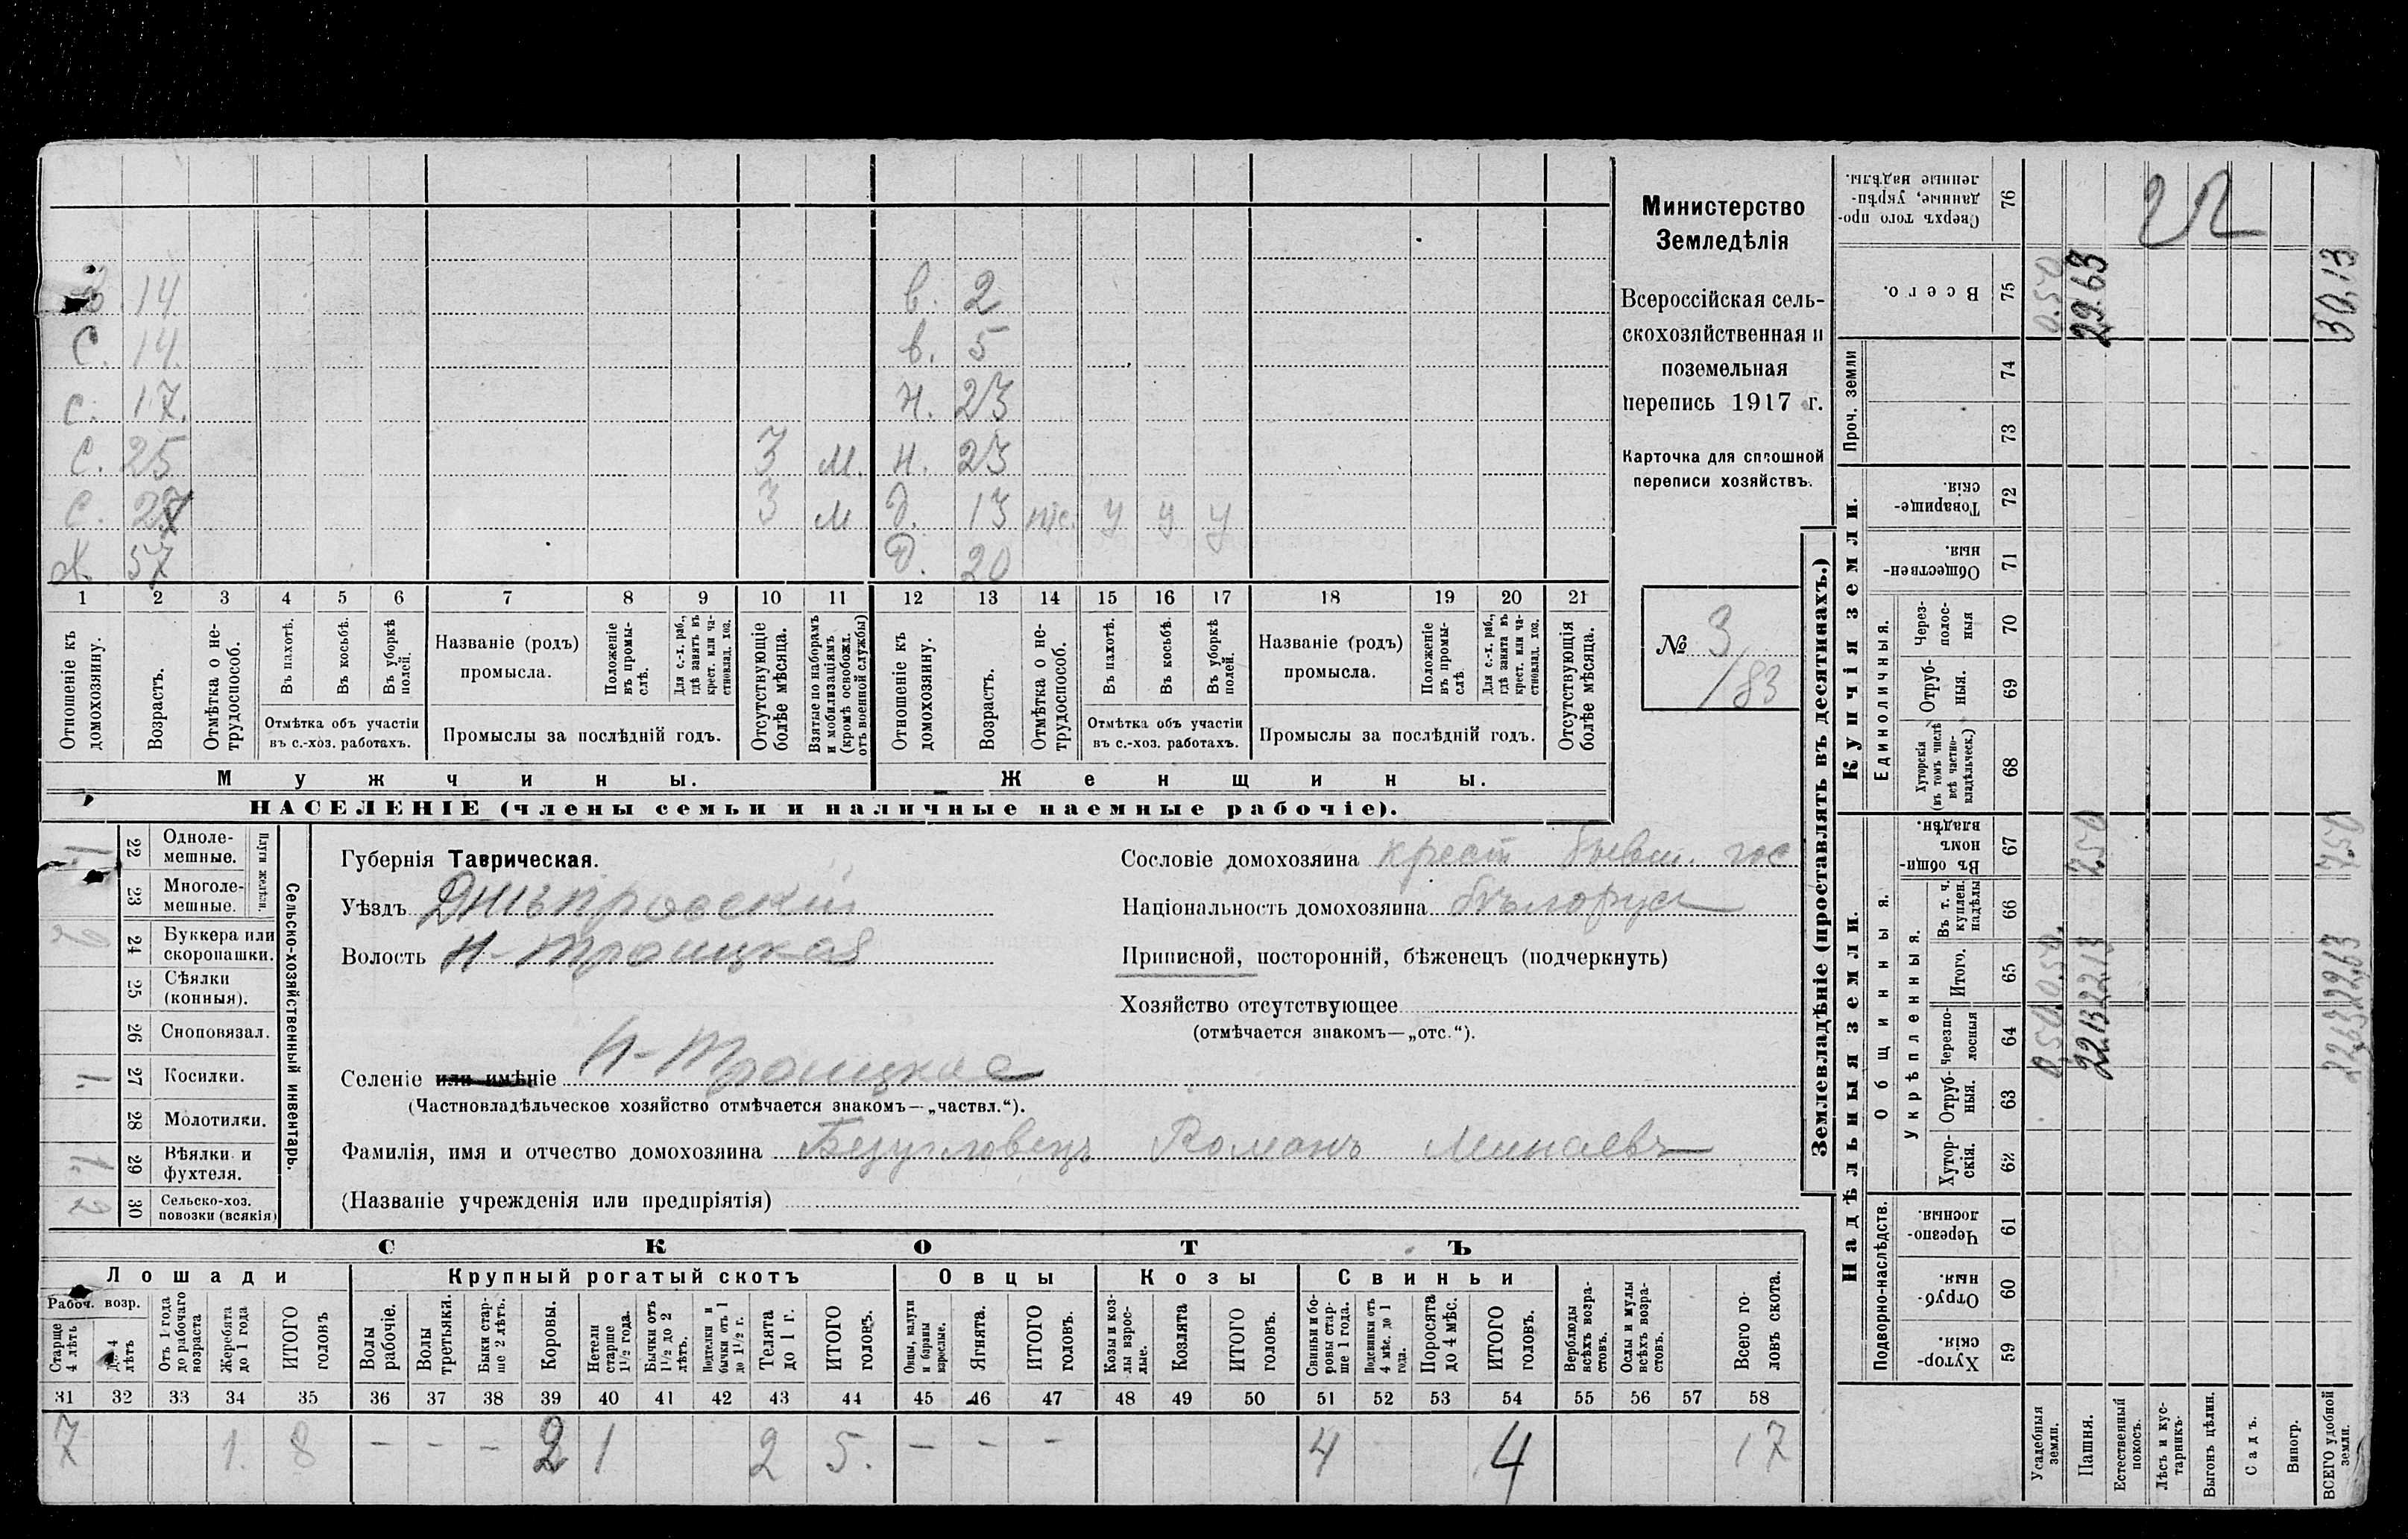 Министерство
Земледѣлія
Всероссійская сель-
скохозяйственная и
поземельная
перепись 1917 г.
Карточка для сплошной
переписи хозяйствъ.
№ 3
/83
14 в. 2
С. 14. в. 5
с. 17. н. 23
с. 25 3 м. н. 23
с. 27 3 м д. 13 у у у
х. 57 д. 20
1 2 3 4 5 6 7 8 9 10 11 12 13 14 15 16 17 18 19 20 21
Отношеніе къ домохозяину.
Возрастъ.
Отмѣтка о не-трудоспособ.
Въ пахотѣ.
Въ косьбѣ.
Въ уборкѣ полей.
Отмѣтка объ участіи въ с.-хоз. работахъ.
Названіе (родъ) промысла.
Положеніе въ промы-слѣ.
Для с.-х. раб., гдѣ занятъ въ крест. или ча-стновлад. хоз.
Промыслы за послѣдній годъ.
Отсутствующіе болѣе мѣсяца.
Взятые по наборамъ и мобилизаціямъ (кромѣ освобожд. отъ военной службы)
Отношеніе къ домохозяину.
Возрастъ.
Отмѣтка о не-трудоспособ.
Въ пахотѣ.
Въ косьбѣ.
Въ уборкѣ полей.
Отмѣтка объ участіи въ с.-хоз. работахъ.
Названіе (родъ) промысла.
Положеніе въ промы-слѣ.
Для с.-х. раб., гдѣ занята въ крест. или ча-стновлад. хоз.
Промыслы за послѣдній годъ.
Отсутствующія болѣе мѣсяца.
Мужчины. Женщины.
НАСЕЛЕНІЕ (члены семьи и наличные наемные рабочіе).
Сельско-хозяйственный инвентарь.
Плуги желѣзн.
22 Одноле-мешные. 1
23 Многоле-мешные.
24 Буккера или скоропашки. 2
25 Сѣялки (конныя).
26 Сноповязал.
27 Косилки. 1.
28 Молотилки.
29 Вѣялки и фухтеля. 1.
30 Сельско-хоз. повозки (всякія) 2
Губернія Таврическая.
Уѣздъ Днѣпровскій
Волость Н-Троицкая
Селеніе или имѣніе Н-Троицкае
(Частновладѣльческое хозяйство отмѣчается знакомъ—„частвл.“).
Фамилія, имя и отчество домохозяина Безугловецъ Романъ Минаевъ
(Названіе учрежденія или предпріятія)
Сословіе домохозяина крест бывш. гос
Національность домохозяина бѣлорусъ
Приписной, посторонній, бѣженецъ (подчеркнуть)
Хозяйство отсутствующее
(отмѣчается знакомъ—„отс.“).
СКОТЪ
Лошади Крупный рогатый скотъ Овцы Козы Свиньи
Рабоч. возр.
Старше 4 лѣтъ
До 4 лѣтъ
Отъ 1 года до рабочаго возраста
Жеребята до 1 года
ИТОГО головъ
Волы рабочіе.
Волы третьяки.
Быки стар-ше 2 лѣтъ.
Коровы.
Нетели старше 1½ года.
Бычки отъ 1½ до 2 лѣтъ.
Подтелки и бычки отъ 1 до 1½ г.
Телята до 1 г.
ИТОГО головъ.
Овцы, валухи и бараны взрослые.
Ягнята.
ИТОГО головъ.
Козы и коз-лы взрос-лые.
Козлята
ИТОГО головъ.
Свиньи и бо-ровы стар-ше 1 года.
Подсвинки отъ 4 мѣс. до 1 года.
Поросята до 4 мѣс.
ИТОГО головъ.
Верблюды всѣхъ возра-стовъ.
Ослы и мулы всѣхъ возра-стовъ.
Всего го-ловъ скота.
31 32 33 34 35 36 37 38 39 40 41 42 43 44 45 46 47 48 49 50 51 52 53 54 55 56 57 58
7 1. 8 - - - 2 1 2 5. - - - 4 4 17
Землевладѣніе (проставлять въ десятинахъ.)
Надѣльныя земли. Купчія земли. Проч. земли
Подворно-наслѣдств.
Общинныя.
Укрѣпленныя.
Единоличныя.
Хутор-скія. 59
Отруб-ныя. 60
Черезпо-лосныя. 61
Хутор-скія. 62
Отруб-ныя. 63
Черезпо-лосныя 64
Итого. 65
Въ т. ч. куплен. надѣлы 66
Въ общин-номъ владѣн. 67
Хуторскія (въ томъ числѣ всѣ частно-владѣльческ.) 68
Отруб-ныя. 69
Через-полос-ныя 70
Обществен-ныя. 71
Товарище-скія. 72
73
74
Всего. 75
Сверхъ того про-данные, укрѣп-ленные надѣлы. 76
Усадебныя земли. 0.50 0.50. 0.50
Пашня. 22.13 22.13 7.50 29.63
Естественный покосъ.
Лѣсъ и кус-тарникъ.
Выгонъ цѣлин.
Садъ.
Виногр.
ВСЕГО удобной земли. 22.63 22.63 7.50 30.13